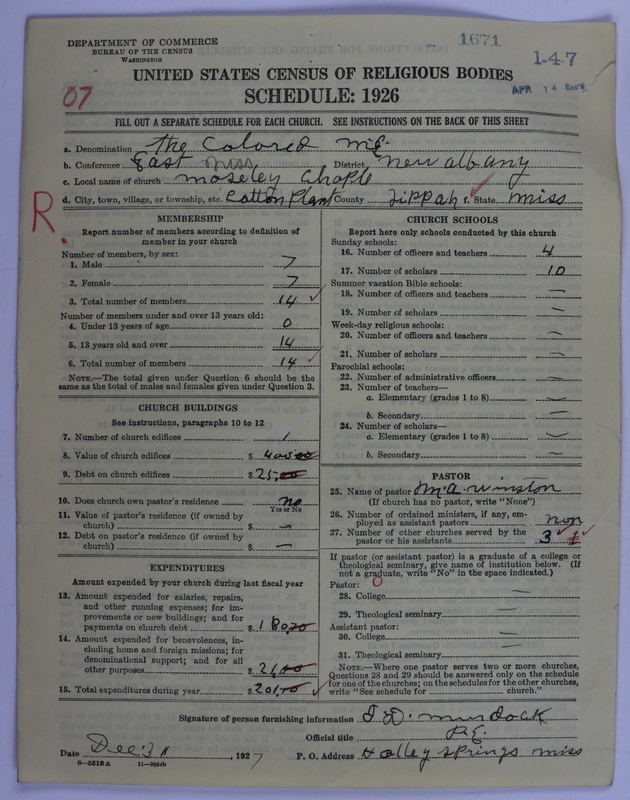 1671
1-4-7
DEPARTMENT OF COMMERCE
BUREAU OF THE CENSUS
WASHINGTON
UNITED STATES CENSUS OF RELIGIOUS BODIES
07
SCHEDULE: 1926
APR 14
FILL OUT A SEPARATE SCHEDULE FOR EACH CHURCH. SEE INSTRUCTIONS ON THE BACK OF THIS SHEET
a. Denomination The Colored M.E.
b. Conference East Miss District New Albany
c. Local name of church Moseley Chaple
d. City, town, village, or township, etc. Cotton Plant County Tippah f. State Miss
R.
MEMBERSHIP
Report number of members according to definition of
member in your church
Number of members, by sex:
1. Male 7
2. Female 7
3. Total number of members 14
Number of members under and over 13 years old:
4. Under 13 years of age 0
5. 13 years old and over 14
6. Total number of members 14
NOTE.—The total given under Question 6 should be the
same as the total of males and females given under Question 3.
CHURCH BUILDINGS
See instructions, paragraphs 10 to 12
7. Number of church edifices 1
8. Value of church edifices $ 400.00
9. Debt on church edifices $ 25.00
10. Does church own pastor's residence no
Yes or No
11. Value of pastor's residence (if owned by
church) $ —
12. Debt on pastor's residence (if owned by
church) $ —
EXPENDITURES
Amount expended by your church during last fiscal year
13. Amount expended for salaries, repairs,
and other running expenses; for im-
provements or new buildings; and for
payments on church debt $ 180.70
14. Amount expended for benevolences, in-
cluding home and foreign missions; for
denominational support; and for all
other purposes $ 21.00
15. Total expenditures during year $ 201.70
CHURCH SCHOOLS
Report here only schools conducted by this church
Sunday schools:
16. Number of officers and teachers 4
17. Number of scholars 10
Summer vacation Bible schools:
18. Number of officers and teachers —
19. Number of scholars —
Week-day religious schools:
20. Number of officers and teachers —
21. Number of scholars —
Parochial schools:
22. Number of administrative officers —
23. Number of teachers—
a. Elementary (grades 1 to 8) —
b. Secondary —
24. Number of scholars—
a. Elementary (grades 1 to 8) —
b. Secondary —
PASTOR
25. Name of pastor M.A. Winston
(If church has no pastor, write "None")
26. Number of ordained ministers, if any, em-
ployed as assistant pastors non
27. Number of other churches served by the
pastor or his assistants 3
If pastor (or assistant pastor) is a graduate of a college or
theological seminary, give name of institution below. (If
not a graduate, write "No" in the space indicated.)
Pastor: 0
28. College —
29. Theological seminary —
Assistant pastor:
30. College —
31. Theological seminary —
NOTE.—Where one pastor serves two or more churches,
Questions 28 and 29 should be answered only on the schedule
for one of the churches; on the schedules for the other churches,
write "See schedule for church."
Signature of person furnishing information I D. Murdock
Official title P.E.
Date Dec 31, 1927 P. O. Address Holley Springs Miss
8—5518a 11—9564b